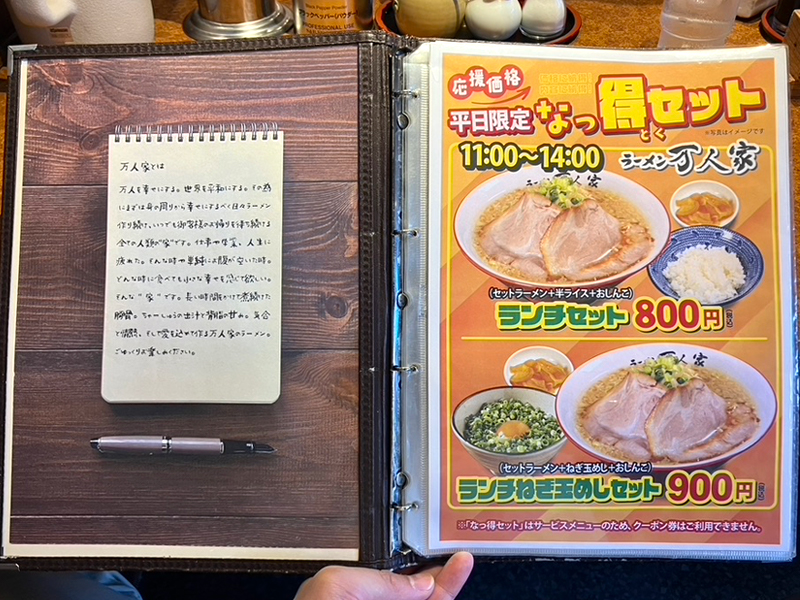 万人家とは
万人を幸せにする。世界を平和にする。その為
にまずは身の周りから幸せにするべく日々ラーメン
作り続け、いつでも御客様のお帰りを待ち続ける
全ての人類の"家"です。仕事や学業、人生に
疲れた。そんな時や単純にお腹が空いた時。
どんな時に食べても小さな幸せを感じて欲しい。
そんな"家"です。長い時間をかけて煮続けた
豚骨。ちゃーしゅうの出汁と背脂の甘み。気合
と情熱、そして愛を込めて作る万人家のラーメン。
ごゆっくりお楽しみください。
PROFESSIONAL USE
応援価格
平日限定 なっ得セット
とく
※写真はイメージです
11:00〜14:00
ラーメン 万人家
(セットラーメン+半ライス+おしんこ)
ランチセット 800円(税込)
(セットラーメン+ねぎ玉めし+おしんこ)
ランチねぎ玉めしセット 900円(税込)
※「なっ得セット」はサービスメニューのため、クーポン券はご利用できません。